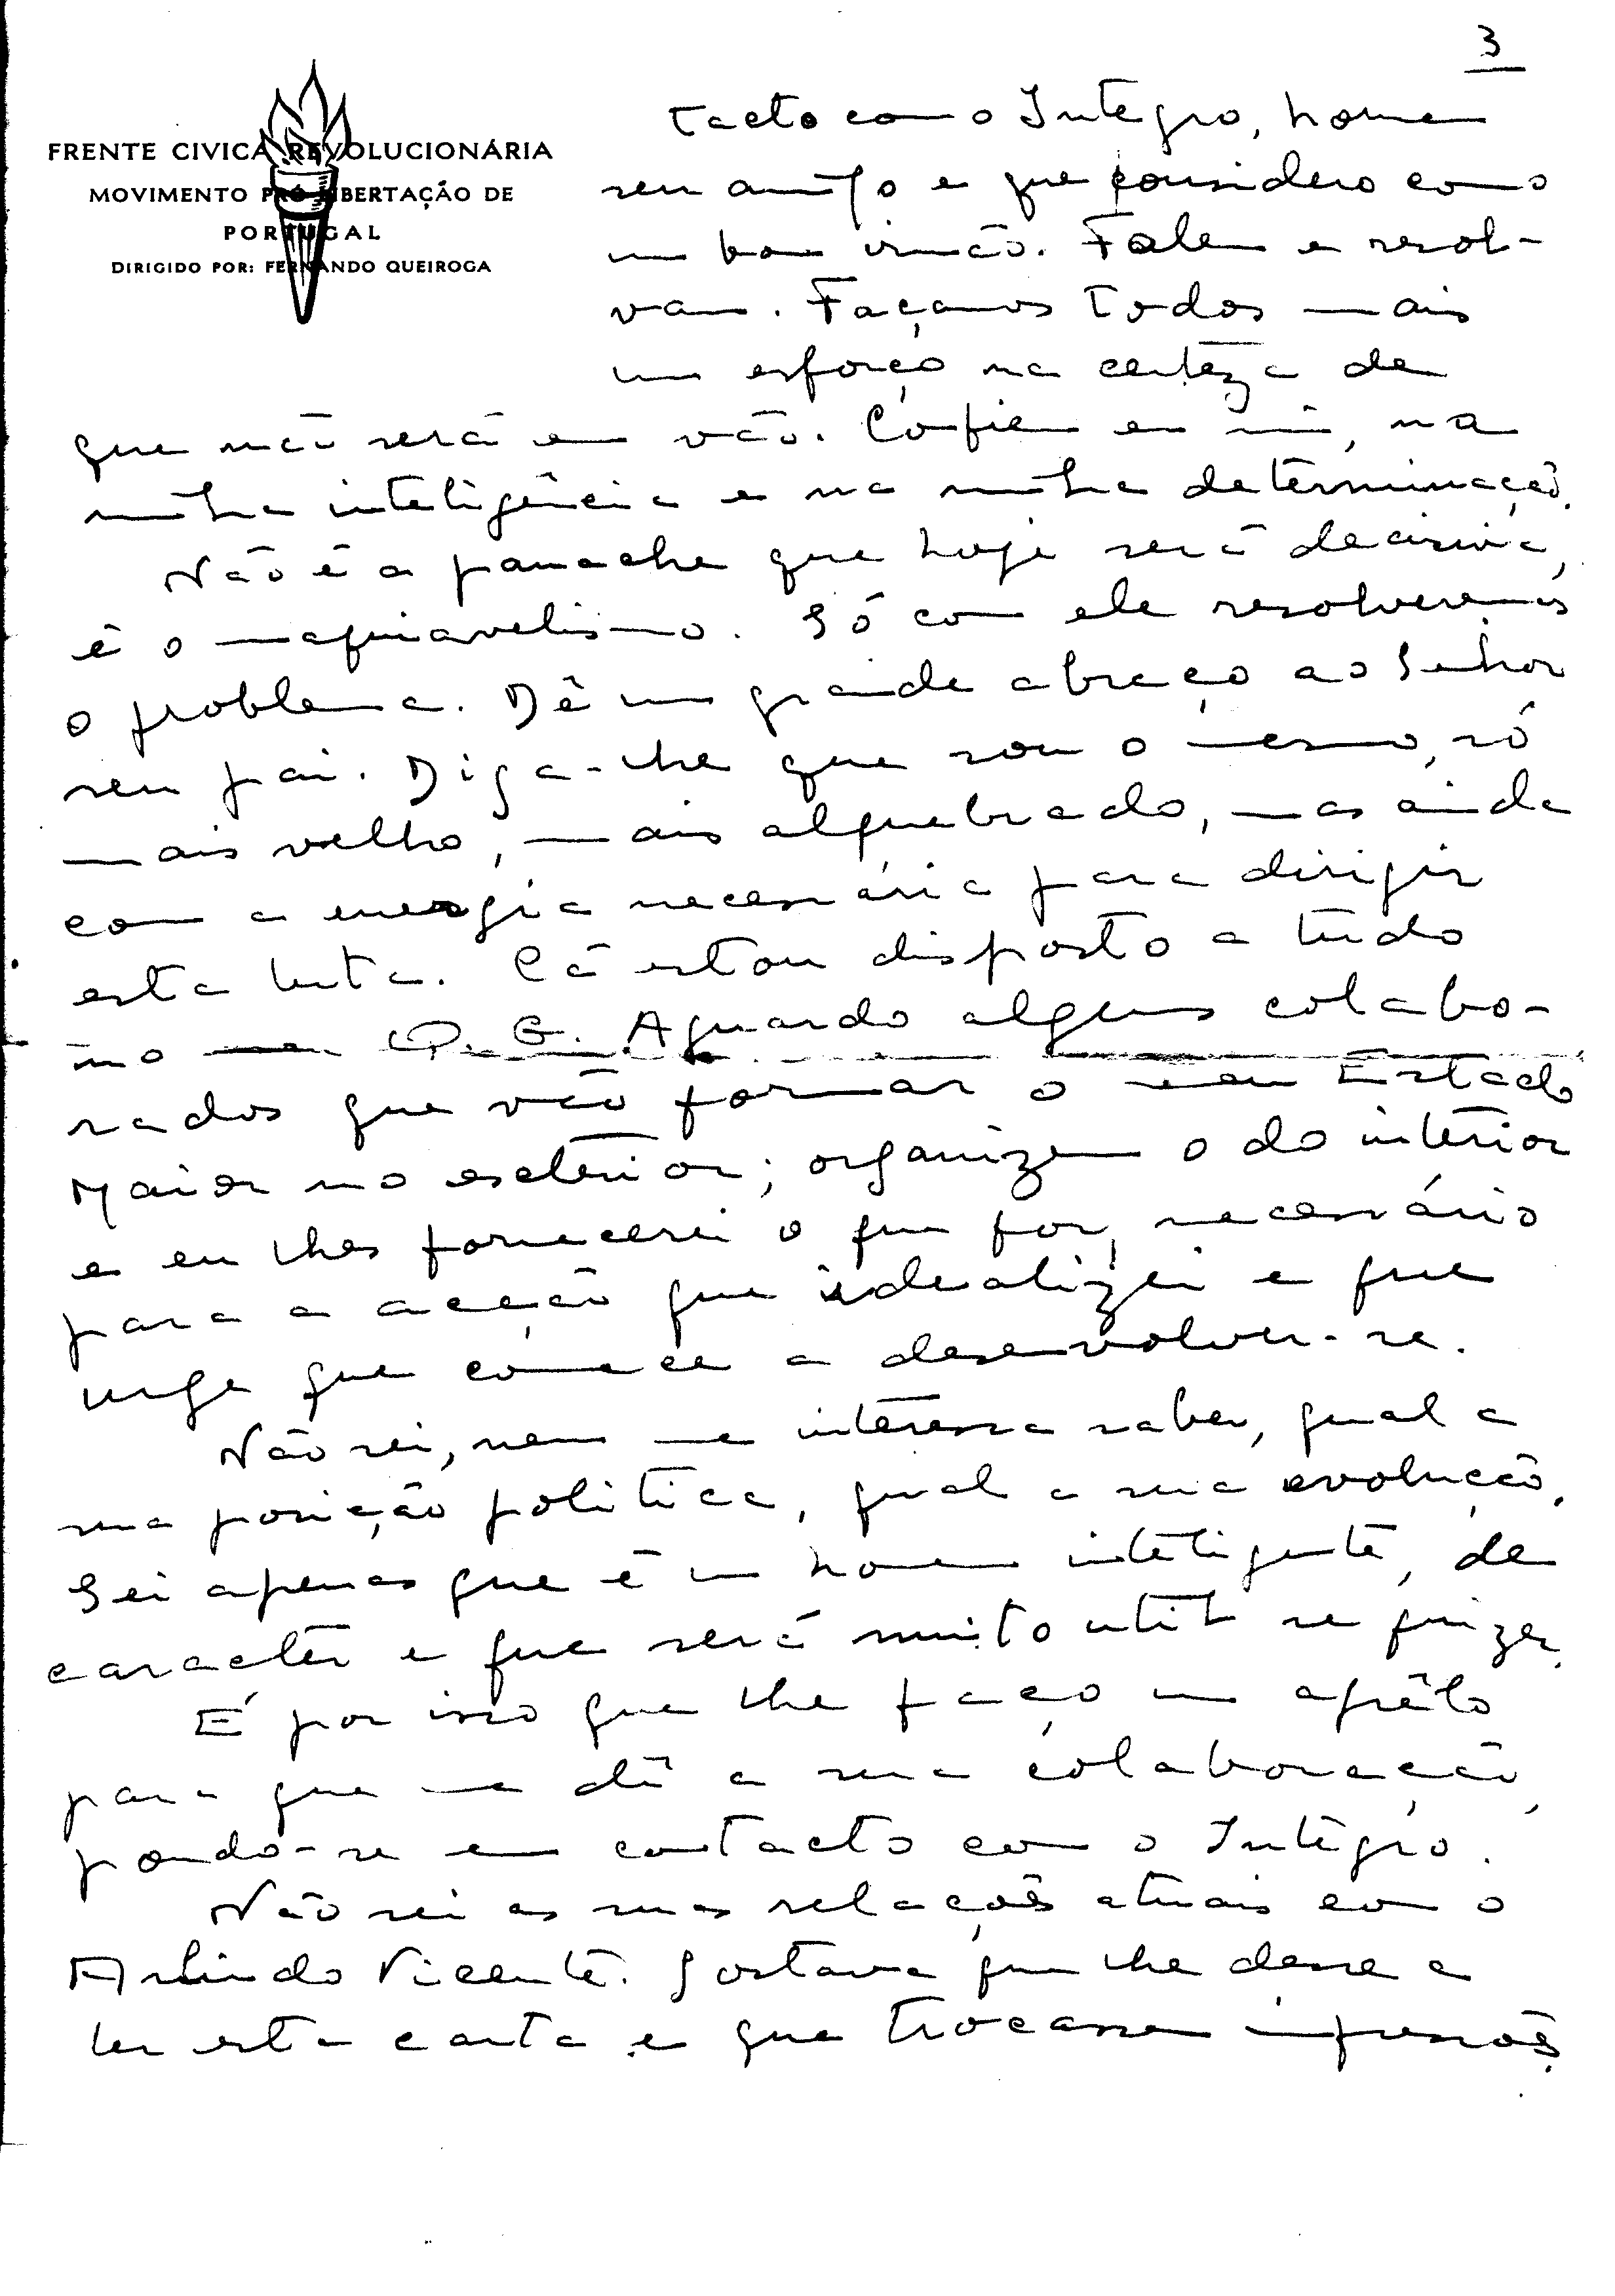 3
FRENTE CIVICA REVOLUCIONÁRIA
MOVIMENTO PRÓ LIBERTAÇÃO DE
PORTUGAL
DIRIGIDO POR: FERNANDO QUEIROGA
tacto com o Integro, homem
seu amigo e que considero como
um bom irmão. Falem e resol-
vam. Façamos todos mais
um esforço na certeza de
que não será em vão. Confiem em mim, na
minha inteligência e na minha determinação.
Não é a panache que hoje será decisiva,
é o maquiavelismo. Só com ele resolveremos
o problema. Dê um grande abraço ao Senhor
seu pai. Diga-lhe que sou o mesmo, só
mais velho, mais alquebrado, mas ainda
com a energia necessária para dirigir
esta luta. Cá estou disposto a tudo
no meu Q. G. Aguardo alguns colabo-
rados que vão formar o meu Estado
Maior no exterior; organizem o do interior
e eu lhes fornecerei o que for necessário
para a acção que idealizei e que
urge que comece a desenvolver-se.
Não sei, nem me interessa saber, qual a
sua posição politica, qual a sua evolução.
Sei apenas que é um homem inteligente, de
caracter e que será muito util se quizer.
É por isso que lhe faço um apêlo
para que me dê a sua colaboração,
pondo-se em contacto com o Integro.
Não sei as suas relações atuais com o
Arlindo Vicente. Gostava que lhe desse a
ler esta carta e que trocassem impressões.